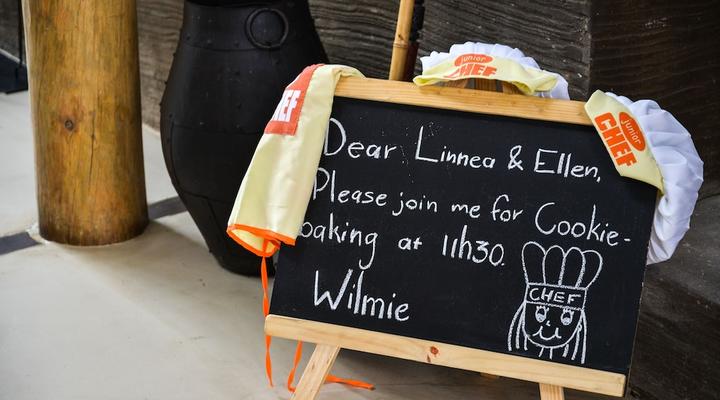 junior
CHEF
junior
CHEF
CHEF
Dear Linnea & Ellen,
Please join me for Cookie-
baking at 11h30.
Wilmie
CHEF